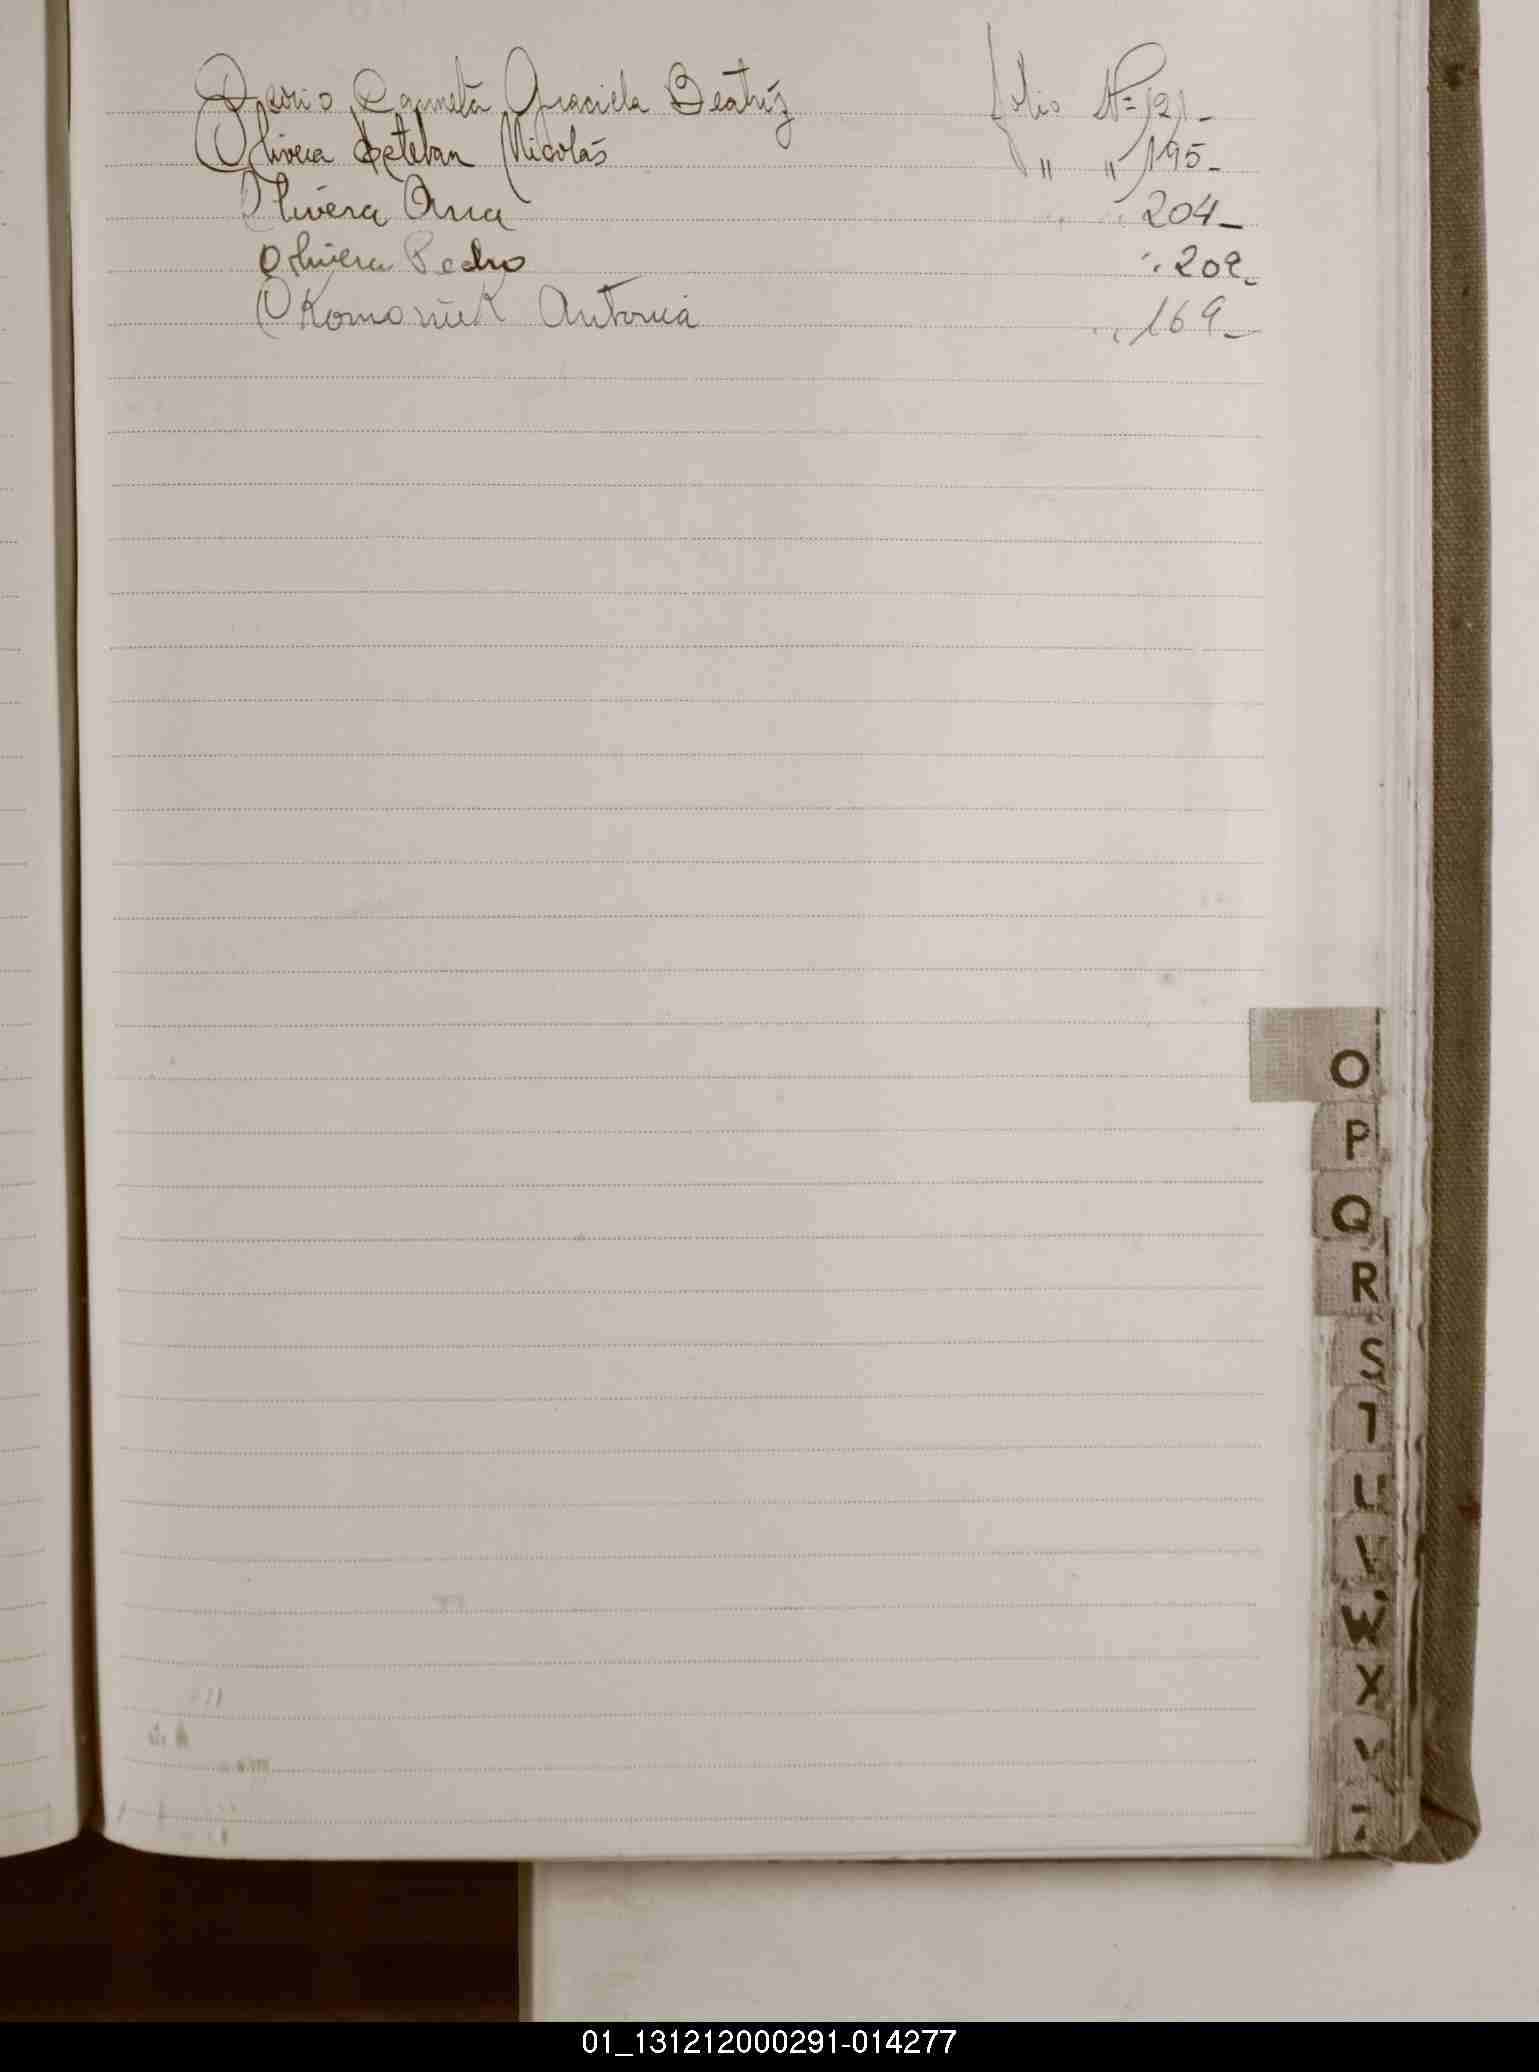 Osorio Ramneta Graciela Beatriz folio Nº=121-
Olivera Esteban Nicolás " " 195-
Olivera Ana " " 204-
Olivera Pedro " 202-
Okomaniuk Antonia " " 169-
O
P
Q
R
S
T
U
V
W
X
Y
01_131212000291-014277